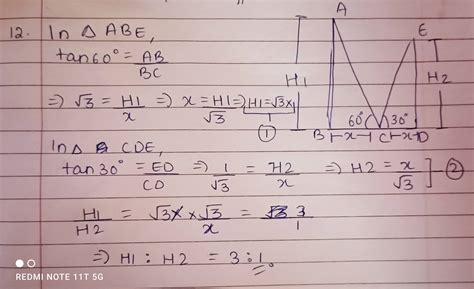 12. In △ ABE,
tan60° = AB/BC
⇒ √3 = H1/x ⇒ x = H1/√3 ⇒ H1 = √3x
①
In △ CDE,
tan30° = ED/CD ⇒ 1/√3 = H2/x ⇒ H2 = x/√3 ] ②
H1/H2 = √3x × √3/x = 3/1
⇒ H1 : H2 = 3:1.
A
E
H1
H2
60° 30°
B x C x D
REDMI NOTE 11T 5G